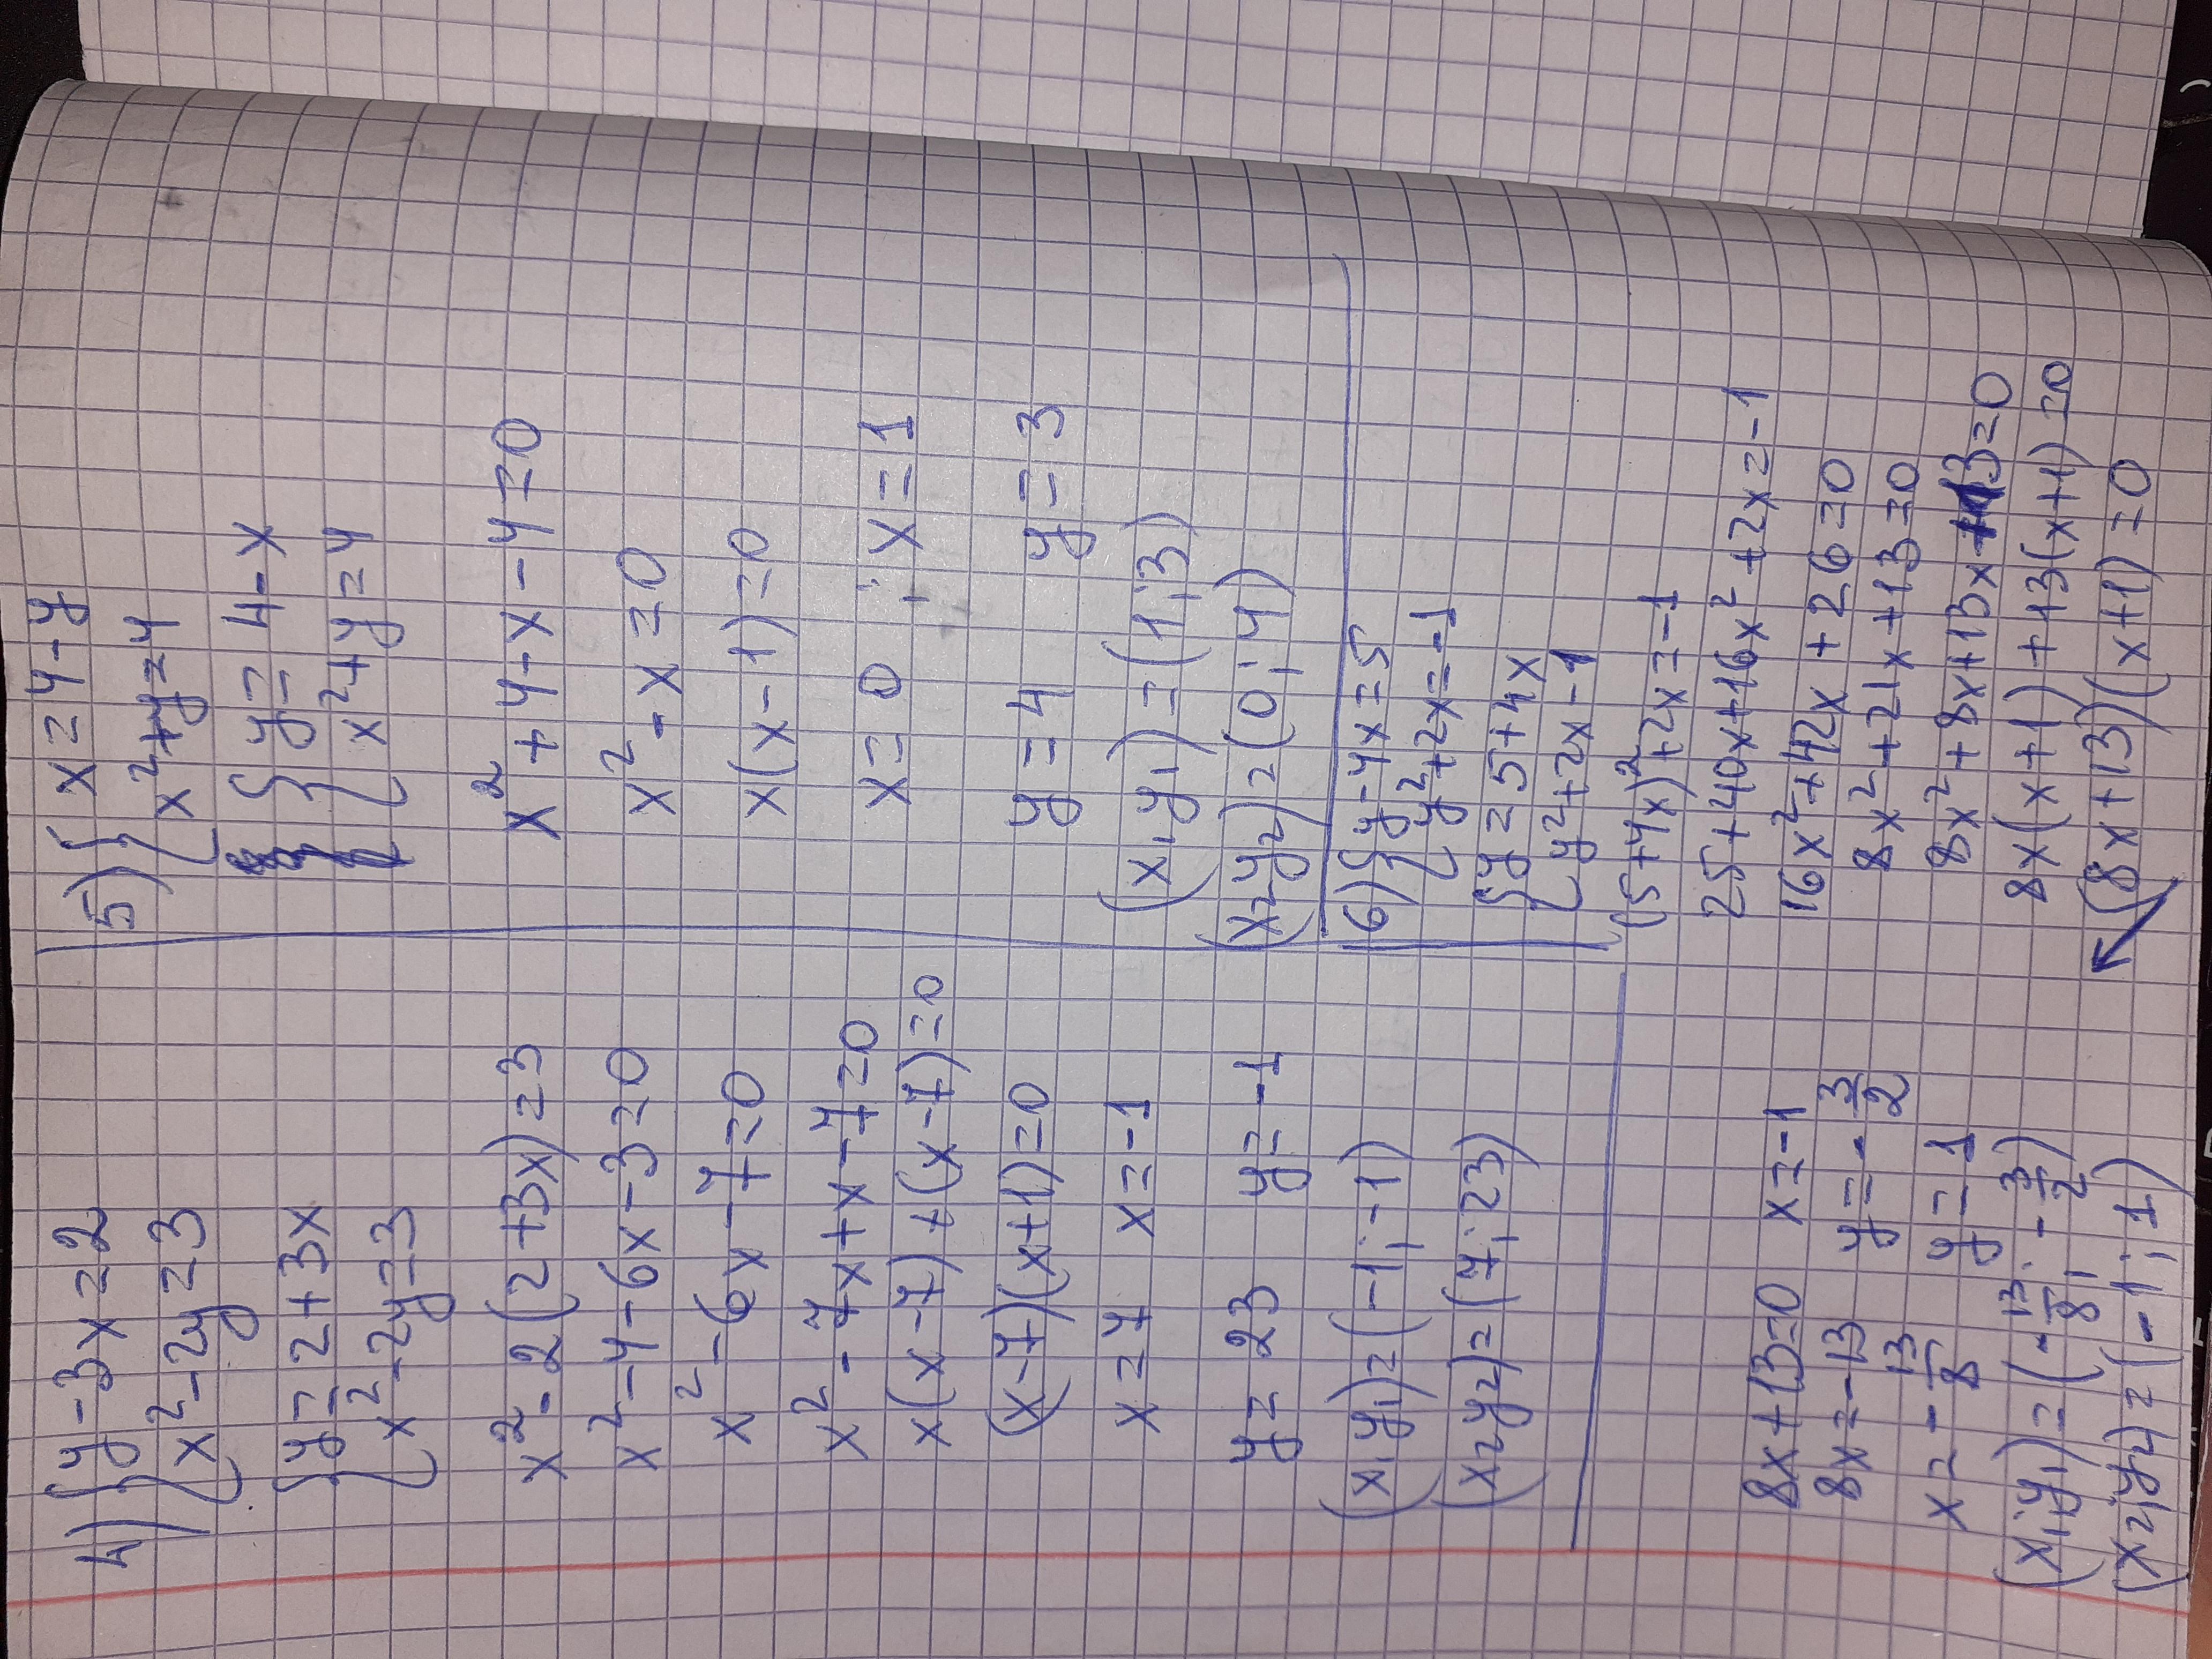 4) { y-3x=2
x²-2y=3
{ y=2+3x
x²-2y=3
x²-2(2+3x)=3
x²-4-6x-3=0
x²-6x-7=0
x²-7x+x-7=0
x(x-7)+(x-7)=0
(x-7)(x+1)=0
x=7 x=-1
y=23 y=-1
(x₁y₁)=(-1;-1)
(x₂y₂)=(7;23)
5) { x=4-y
x²+y=4
{ y=4-x
x²+y=4
x²+4-x-4=0
x²-x=0
x(x-1)=0
x=0 ; x=1
y=4 y=3
(x₁y₁)=(1;3)
(x₂y₂)=(0;4)
6) { y-4x=5
y²+2x=-1
{ y=5+4x
y²+2x-1
(5+4x)²+2x=-1
25+40x+16x²+2x=-1
16x²+42x+26=0
8x²+21x+13=0
8x²+8x+13x+13=0
8x(x+1)+13(x+1)=0
(8x+13)(x+1)=0
8x+13=0 x=-1
8x=-13 y=-3/2
x=-13/8 y=1
(x₁;y₁)=(-13/8;-3/2)
(x₂;y₂)=(-1;1)